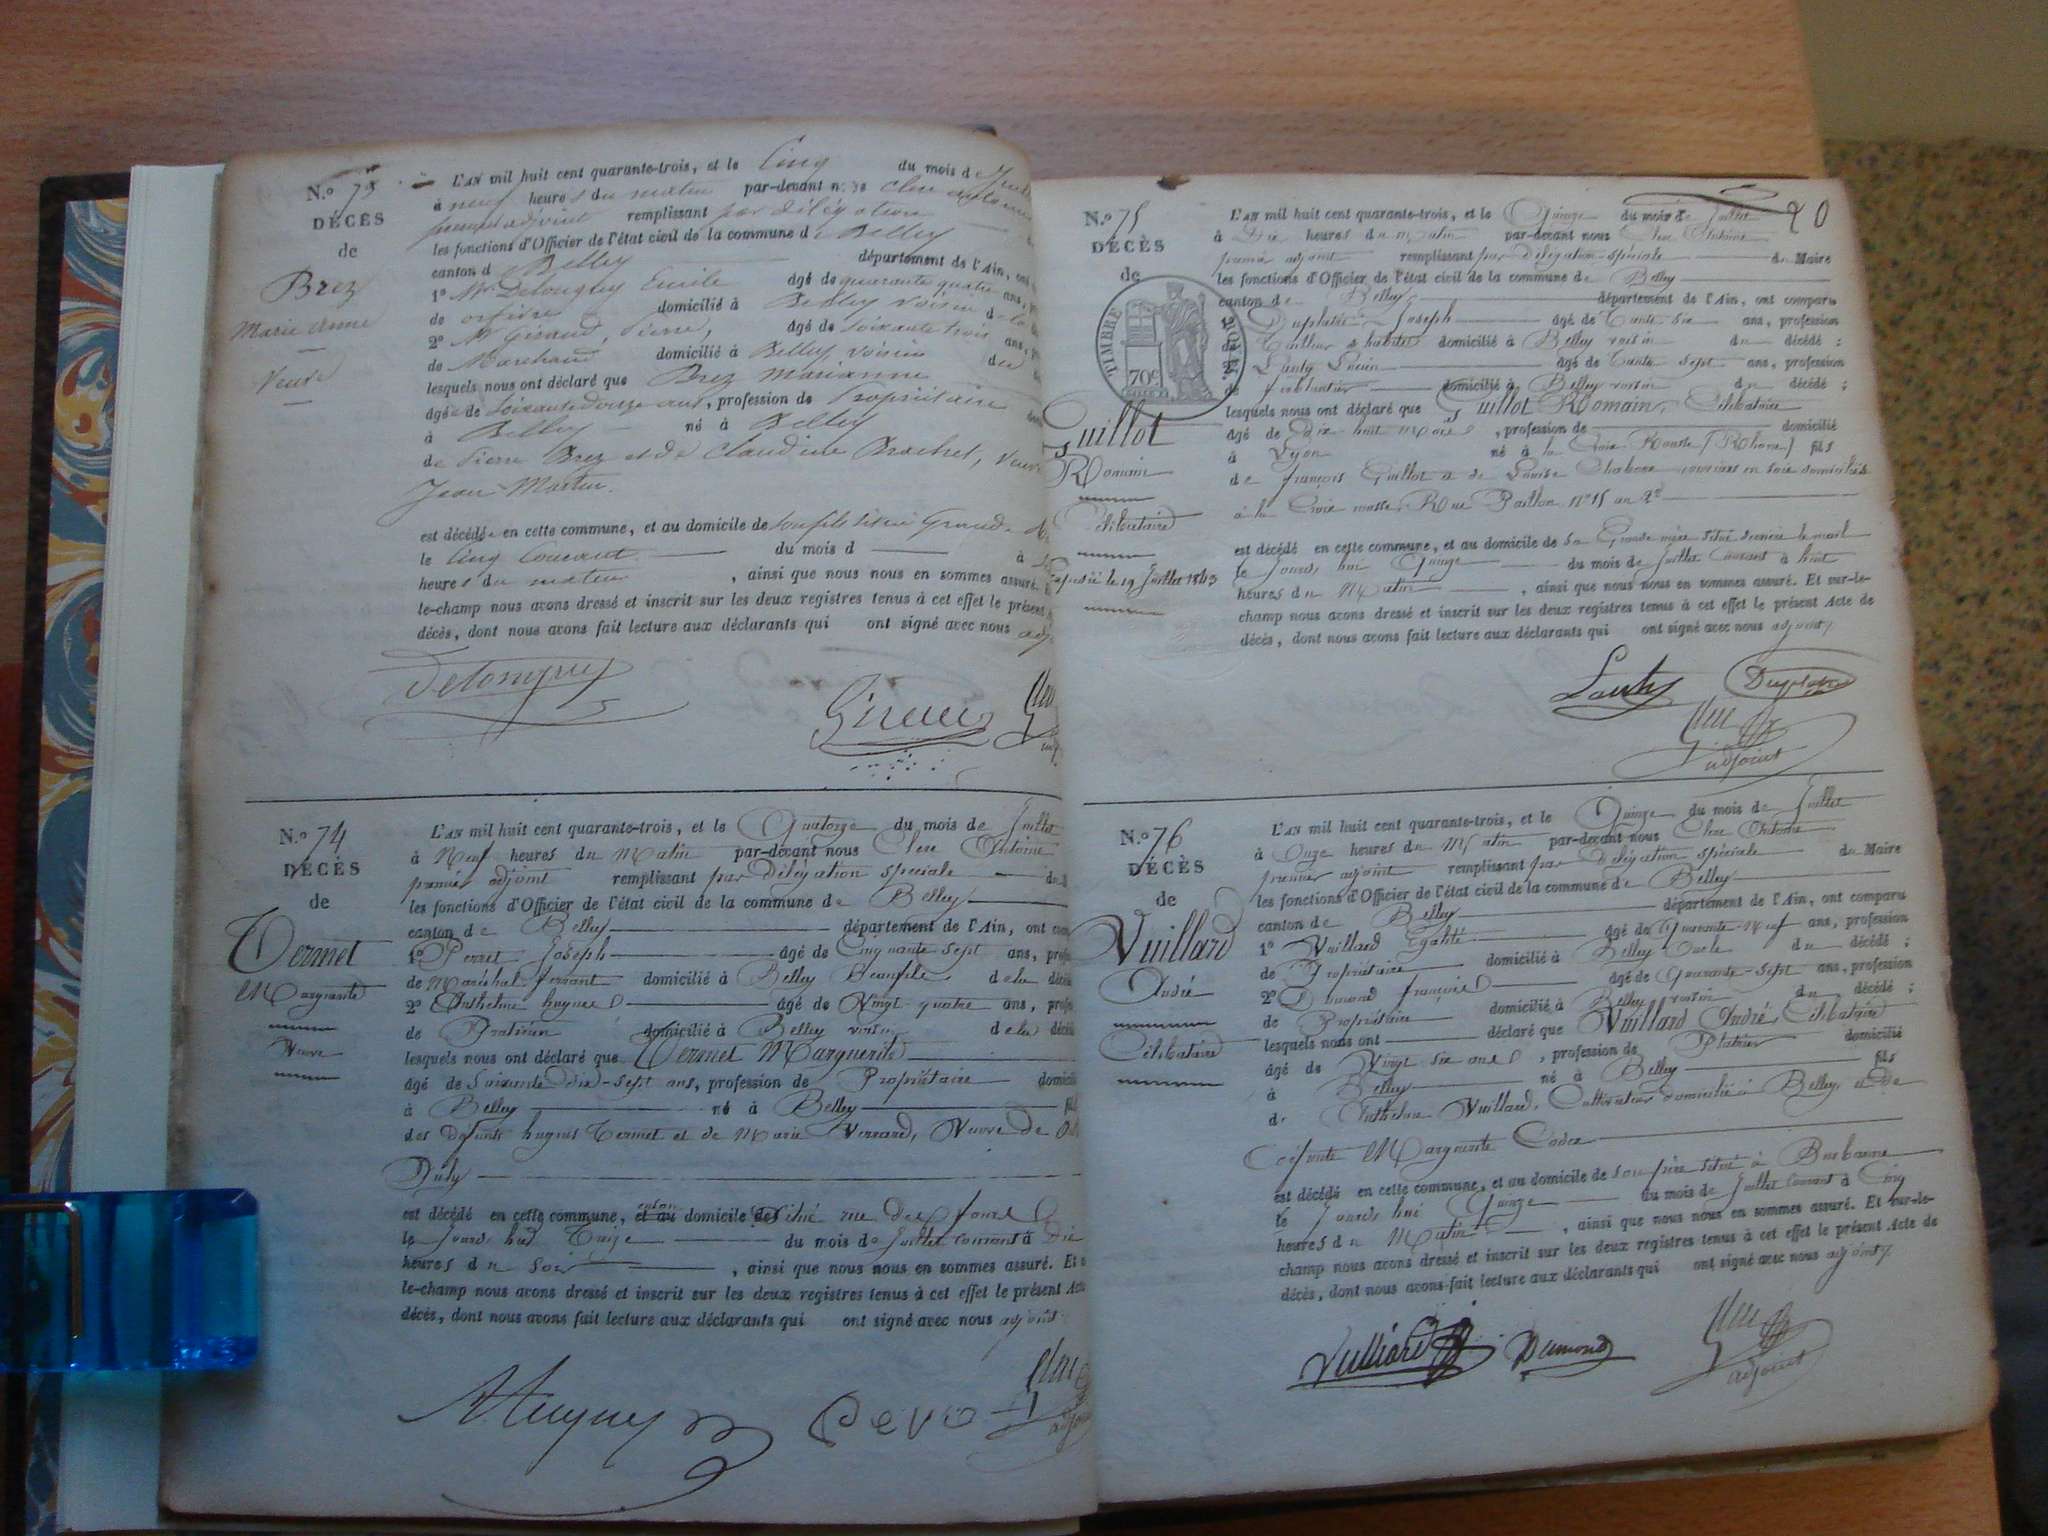 N.o 73
DÉCÈS
de
Brez
Marie Anne
Veuve
L'AN mil huit cent quarante-trois, et le Cinq du mois de
à neuf heures du matin par-devant nous Clerc antoine
premier adjoint remplissant par délégation
les fonctions d'Officier de l'état civil de la commune de Belley
canton de Belley département de l'Ain, ont
1o Mr Delongey Emile âgé de quarante quatre ans,
de orfèvre domicilié à Belley voisin de la
2o Mr Giraud, Pierre, âgé de soixante trois ans,
de Marchand domicilié à Belley voisin de
lesquels nous ont déclaré que Brez Marianne
âgée de soixante douze ans, profession de Propriétaire
à Belley né à Belley
de Pierre Brez et de Claudine Brachet, veuve
Jean Martin.
est décédée en cette commune, et au domicile de son fils situé Grande
le cinq courant du mois d à
heures du matin , ainsi que nous nous en sommes assuré.
le-champ nous avons dressé et inscrit sur les deux registres tenus à cet effet le présent
décès, dont nous avons fait lecture aux déclarants qui ont signé avec nous
Giraud
N.o 74
DÉCÈS
de
Termet
Marguerite
Veuve
L'AN mil huit cent quarante-trois, et le Quatorze du mois de Juillet
à Neuf heures du Matin par-devant nous Clerc Antoine
premier adjoint remplissant par délégation spéciale
les fonctions d'Officier de l'état civil de la commune de Belley
canton de Belley département de l'Ain, ont
1o Perret Joseph âgé de Cinquante sept ans,
de Maréchal-ferrant domicilié à Belley Beaufils de la
2o Anthelme hugues âgé de Vingt quatre ans,
de Praticien domicilié à Belley voisin de la
lesquels nous ont déclaré que Termet Marguerite
âgé de Soixante dix-sept ans, profession de Propriétaire
à Belley né à Belley
des défunts hugues Termet et de Marie Verrand, Veuve de
est décédé en cette commune, et au domicile situé rue des fours
le Jourd'hui Treize du mois de Juillet courant à dix
heures du soir , ainsi que nous nous en sommes assuré. Et
le-champ nous avons dressé et inscrit sur les deux registres tenus à cet effet le présent Acte
décès, dont nous avons fait lecture aux déclarants qui ont signé avec nous adjoint
N.o 75
DÉCÈS
de
TIMBRE
70c
Guillot
Romain
Célibataire
Expédié le 19 Juillet 1843
20
L'AN mil huit cent quarante-trois, et le Quinze du mois de Juillet
à Dix heures du matin par-devant nous Clerc Antoine
premier adjoint remplissant par délégation spéciale du Maire
les fonctions d'Officier de l'état civil de la commune de Belley
canton de Belley département de l'Ain, ont comparu
Joseph âgé de Trente six ans, profession
de Tailleur d'habits domicilié à Belley voisin du décédé ;
Lauty Lucien âgé de Trente sept ans, profession
de ferblantier domicilié à Belley voisin du décédé ;
lesquels nous ont déclaré que Guillot Romain, Célibataire
âgé de dix huit mois , profession de domicilié
à Lyon né à la Croix Rousse (Rhône) fils
de françois Guillot et de Louise Chabone ouvriers en soie domiciliés
à la Croix rousse, Rue No 15 au 2e
est décédé en cette commune, et au domicile de sa Grande mère situé derrière le mail
le Jourd'hui Quinze du mois de Juillet Courant à huit
heures du Matin , ainsi que nous nous en sommes assuré. Et sur-le-
champ nous avons dressé et inscrit sur les deux registres tenus à cet effet le présent Acte de
décès, dont nous avons fait lecture aux déclarants qui ont signé avec nous adjoint
Lauty
adjoint
N.o 76
DÉCÈS
de
Vuillard
André
Célibataire
L'AN mil huit cent quarante-trois, et le Quinze du mois de Juillet
à Onze heures du Matin par-devant nous Clerc Antoine
premier adjoint remplissant par délégation spéciale du Maire
les fonctions d'Officier de l'état civil de la commune de Belley
canton de Belley département de l'Ain, ont comparu
1o Vuillard Egalité âgé de Quarante Neuf ans, profession
de Propriétaire domicilié à Belley Oncle du décédé ;
2o Dumond françois âgé de Quarante-sept ans, profession
de Propriétaire domicilié à Belley voisin du décédé ;
lesquels nous ont déclaré que Vuillard André, Célibataire
âgé de Vingt six ans , profession de Platrier domicilié
à Belley né à Belley fils
de Anthelme Vuillard, Cultivateur domicilié à Belley, et de
défunte Marguerite
est décédé en cette commune, et au domicile de son père situé à
le Jourd'hui Quinze du mois de Juillet courant à Cinq
heures du Matin , ainsi que nous nous en sommes assuré. Et sur-le-
champ nous avons dressé et inscrit sur les deux registres tenus à cet effet le présent Acte de
décès, dont nous avons fait lecture aux déclarants qui ont signé avec nous adjoint
Vulliard Dumond
adjoint